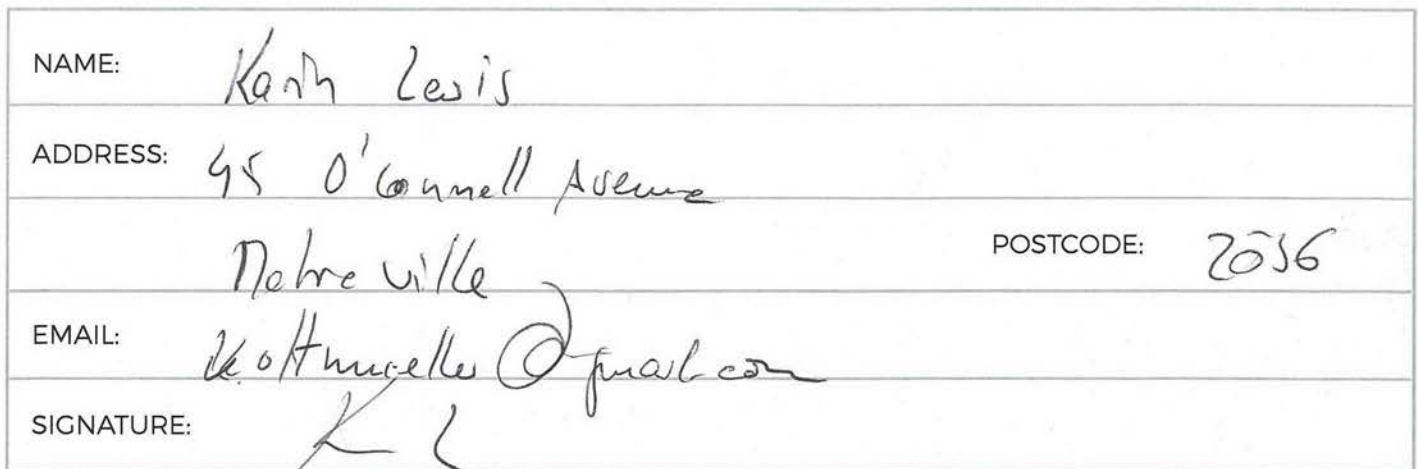 NAME: Karin Lewis
ADDRESS: 45 O'Connell Avenue
Matraville POSTCODE: 2036
EMAIL: @gmail.com
SIGNATURE: K L